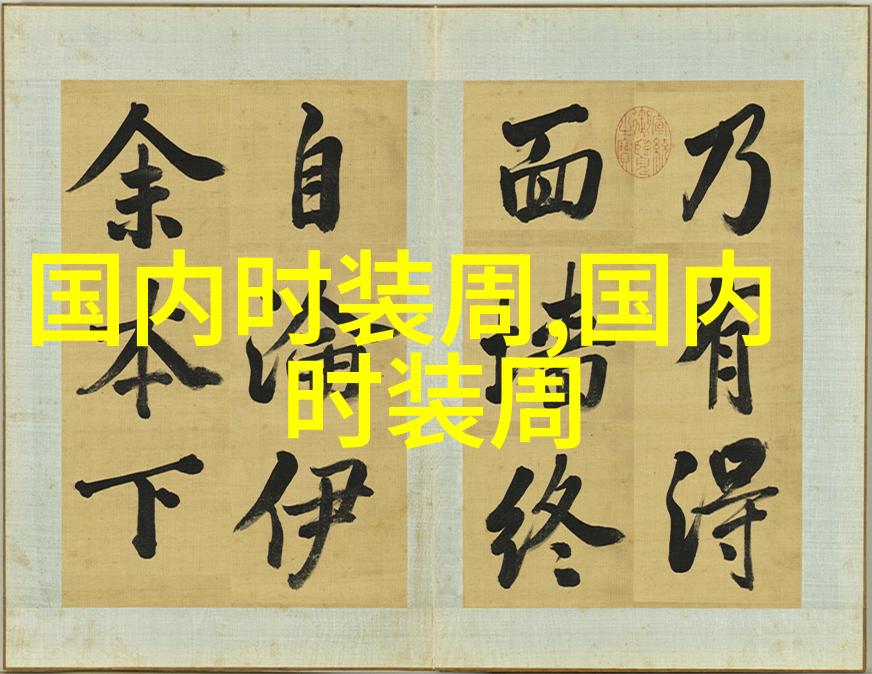 国内时装周,国内
时装周
乃有得
面墻終
自伊
余本下